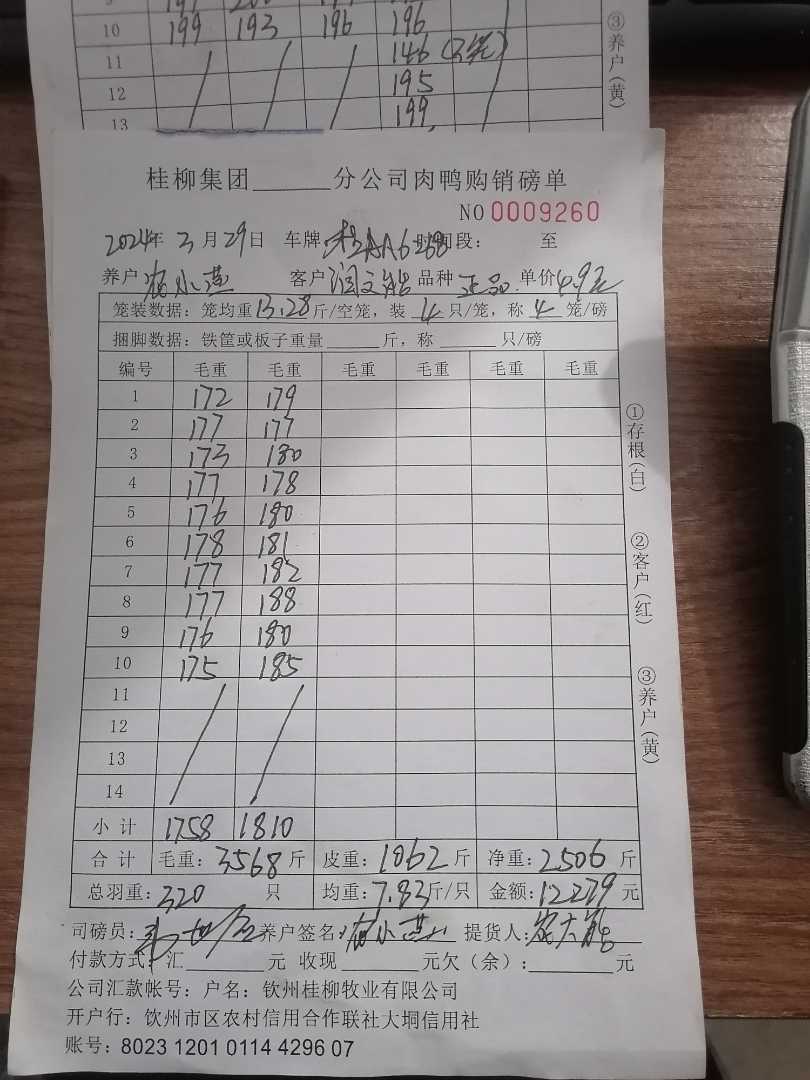 10 199 193 196 196
11 146
12 195
13 199
③养户(黄)
桂柳集团______分公司肉鸭购销磅单
NO 0009260
2024年3月29日 车牌: 时间段: 至
养户 小燕 客户 品种 正品 单价4.9元
笼装数据:笼均重13.28斤/空笼,装4只/笼,称4笼/磅
捆脚数据:铁筐或板子重量______斤,称______只/磅
编号 毛重 毛重 毛重 毛重 毛重 毛重
1 172 179
2 177 177
3 173 180
4 177 178
5 176 180
6 178 181
7 177 182
8 177 188
9 176 180
10 175 185
11
12
13
14
小计 1758 1810
合计 毛重:3568斤 皮重:1062斤 净重:2506斤
总羽重:320只 均重:7.83斤/只 金额:12279元
司磅员: 养户签名: 小燕 提货人:
付款方式:汇______元 收现______元欠(余):______元
公司汇款帐号:户名:钦州桂柳牧业有限公司
开户行:钦州市区农村信用合作联社大垌信用社
账号:8023 1201 0114 4296 07
①存根(白)
②客户(红)
③养户(黄)